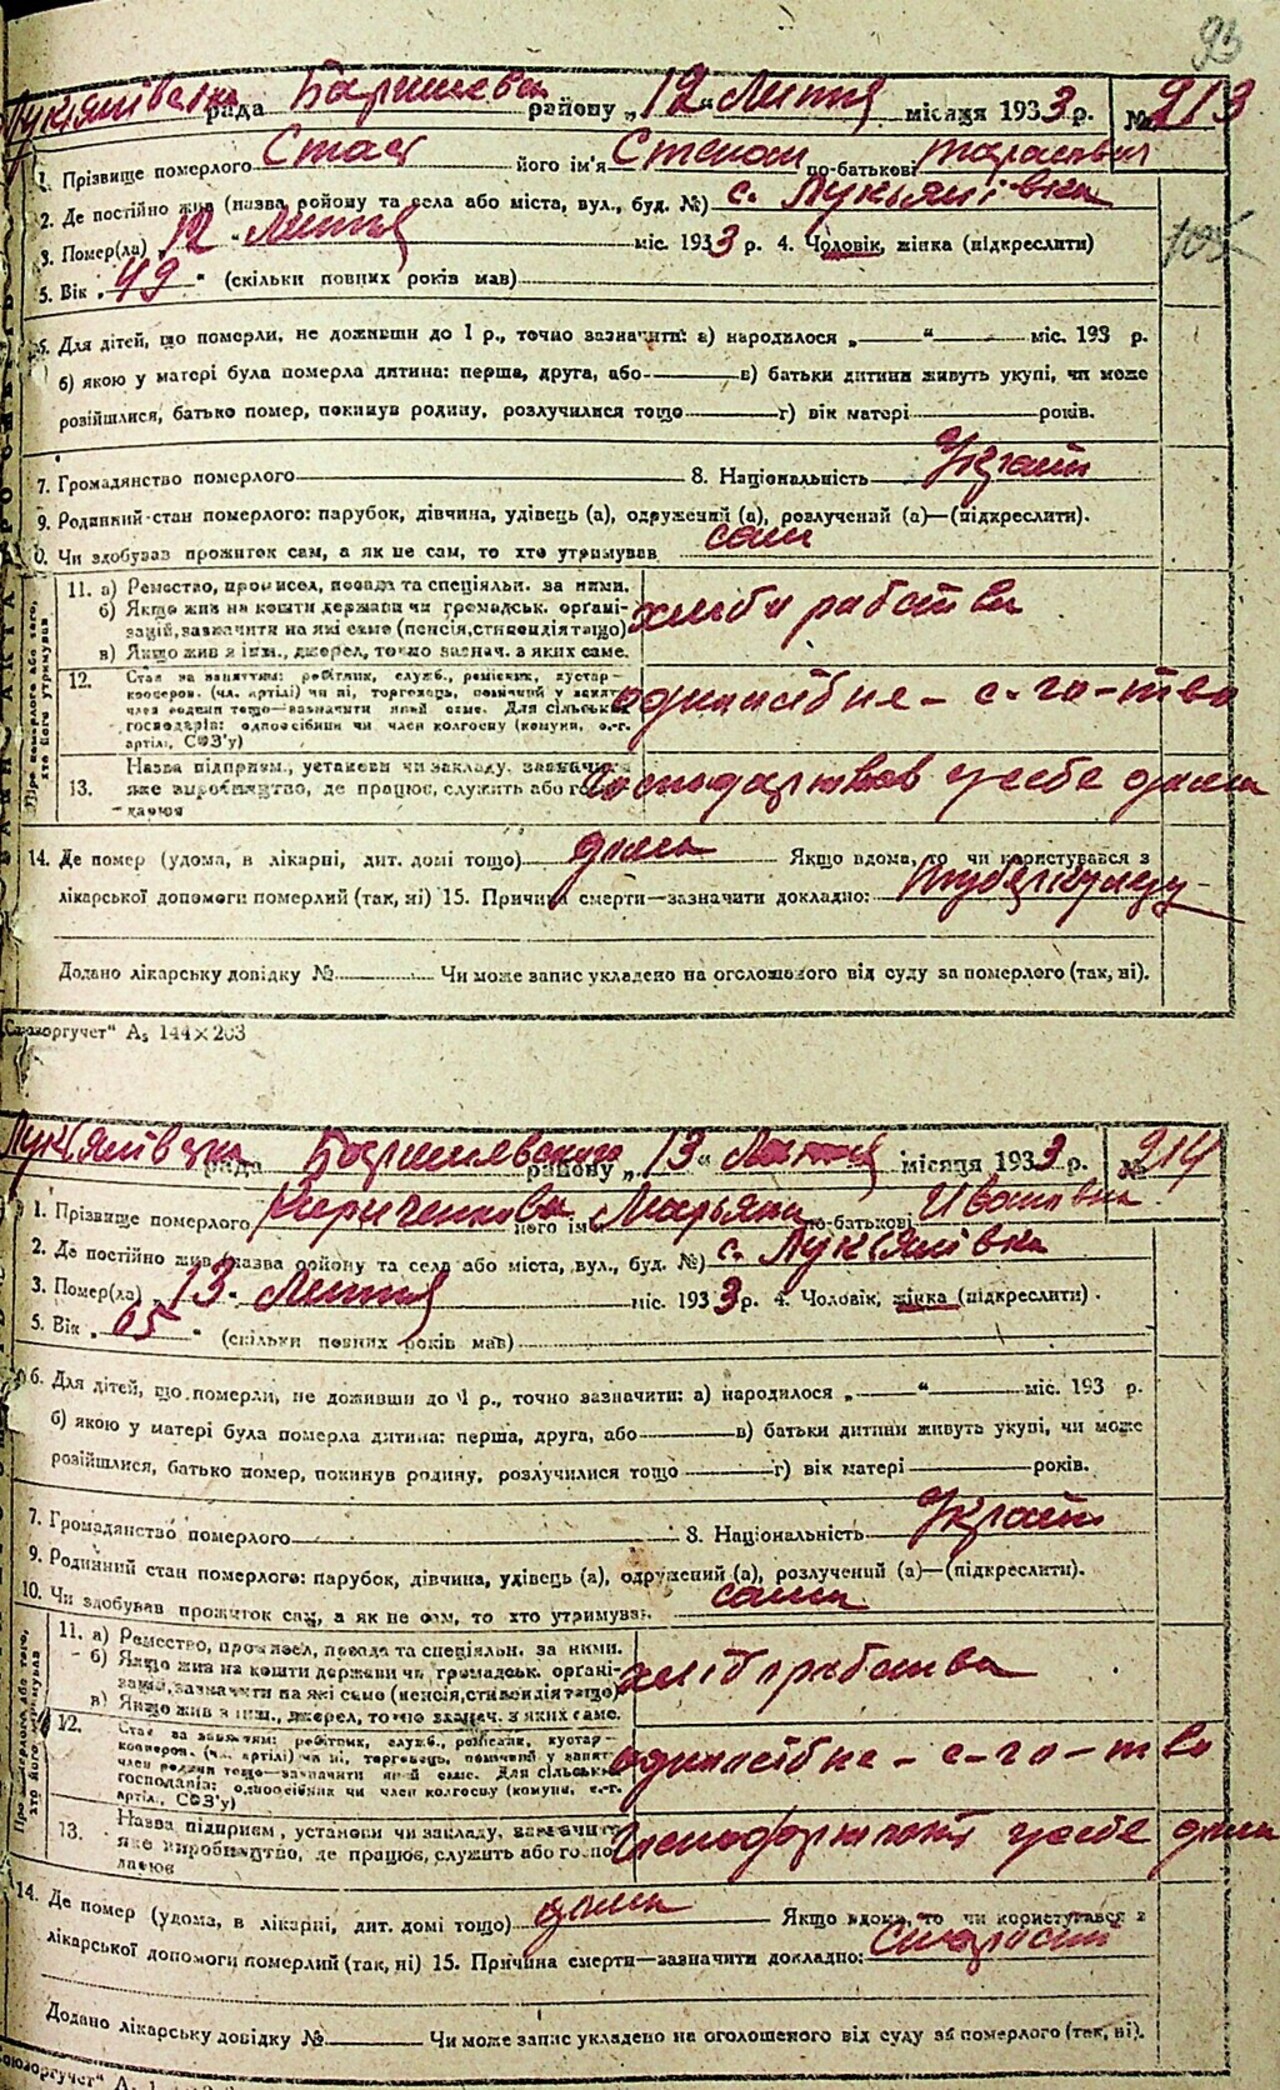 93
Лукянівська рада Баришевськ району „12“ Липня місяця 1933 р. № 213
1. Прізвище померлого Стас його ім'я Степан по-батькові Тарасович
2. Де постійно жив (назва району та села або міста, вул., буд. №) с. Лукьянівка
3. Помер(ла) „12“ Липня міс. 1933 р. 4. Чоловік, жінка (підкреслити)
5. Вік „49“ (скільки повних років мав)
6. Для дітей, що померли, не доживши до 1 р., точно зазначити: а) народилося „—“ — міс. 193 р.
б) якою у матері була померла дитина: перша, друга, або — в) батьки дитини живуть укупі, чи може
розійшлися, батько помер, покинув родину, розлучилися тощо — г) вік матері — років.
7. Громадянство померлого — 8. Національність Україн
9. Родинний стан померлого: парубок, дівчина, удівець (а), одружений (а), розлучений (а)—(підкреслити).
0. Чи здобував прожиток сам, а як не сам, то хто утримував сам
Про померлого або того, хто його утримував
11. а) Ремество, промисел, посада та спеціяльн. за ними.
б) Якщо жив на кошти держави чи громадськ. органі-
зацій, зазначити на які саме (пенсія, стипендія тощо)
в) Якщо жив з інш., джерел, точно зазнач. з яких саме.
хлібиробство
12. Стан за заняттям: робітник, служб., ремісник, кустар-
кооперов. (чл. артілі) чи ні, торговець, помічний у занят.
член родини тощо—зазначити який саме. Для сільськ.
господарів: одноосібник чи член колгоспу (комуни, с.-г.
артілі, СОЗ'у)
одноосібне - с-го-тво
13. Назва підприєм., установи чи закладу, зазначити
яке виробництво, де працює, служить або госпо-
дарює
Господарював у себе дома
14. Де помер (удома, в лікарні, дит. домі тощо) дома Якщо вдома, то чи користувався з
лікарської допомоги померлий (так, ні) 15. Причина смерти—зазначити докладно: туберкульоз
Додано лікарську довідку № — Чи може запис укладено на оголошеного від суду за померлого (так, ні).
„Союзоргучет“ А₅ 144×203
Лукянівська рада Баришевського району „13“ Липня місяця 1933 р. № 214
1. Прізвище померлого Кириченкова його ім'я Марьяна по-батькові Ивановна
2. Де постійно жив (назва району та села або міста, вул., буд. №) с. Лукянівка
3. Помер(ла) „13“ Липня міс. 1933 р. 4. Чоловік, жінка (підкреслити).
5. Вік „65“ (скільки повних років мав)
6. Для дітей, що померли, не доживши до 1 р., точно зазначити: а) народилося „—“ — міс. 193 р.
б) якою у матері була померла дитина: перша, друга, або — в) батьки дитини живуть укупі, чи може
розійшлися, батько помер, покинув родину, розлучилися тощо — г) вік матері — років.
7. Громадянство померлого — 8. Національність Україн
9. Родинний стан померлого: парубок, дівчина, удівець (а), одружений (а), розлучений (а)—(підкреслити).
10. Чи здобував прожиток сам, а як не сам, то хто утримував. сама
Про померлого або того, хто його утримував
11. а) Ремество, промисел, посада та спеціяльн. за ними.
б) Якщо жив на кошти держави чи громадськ. органі-
зацій, зазначити на які саме (пенсія, стипендія тощо)
в) Якщо жив з інш., джерел, точно зазнач. з яких саме.
хлібробства
12. Стан за заняттям: робітник, служб., ремісник, кустар-
кооперов. (чл. артілі) чи ні, торговець, помічний у занят.
член родини тощо—зазначити який саме. Для сільськ.
господарів: одноосібник чи член колгоспу (комуни, с.-г.
артілі, СОЗ'у)
одноосібне - с-го-тво
13. Назва підприєм., установи чи закладу, зазначити
яке виробництво, де працює, служить або госпо-
дарює
у себе дома
14. Де помер (удома, в лікарні, дит. домі тощо) дома Якщо вдома, то чи користувався з
лікарської допомоги померлий (так, ні) 15. Причина смерти—зазначити докладно: старість
Додано лікарську довідку № — Чи може запис укладено на оголошеного від суду за померлого (так, ні).